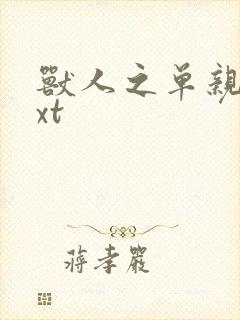 兽人之单亲
xt
蒋孝严